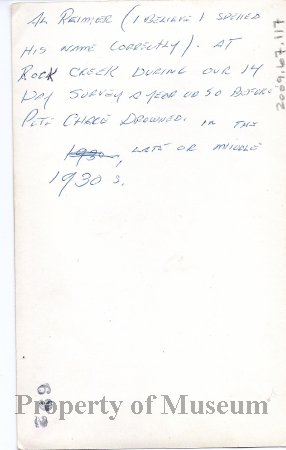 AL REIMER (I BELIEVE I SPELLED
HIS NAME CORRECTLY). AT
ROCK CREEK DURING OUR 14
DAY SURVEY A YEAR OR SO BEFORE
PETE CHASE DROWNED. IN THE
1930s, LATE OR MIDDLE
1930 S.
2009.67.117
Property of Museum